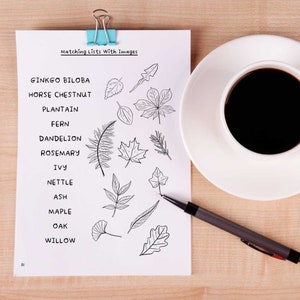 Matching Lists With Images
GINKGO BILOBA
HORSE CHESTNUT
PLANTAIN
FERN
DANDELION
ROSEMARY
IVY
NETTLE
ASH
MAPLE
OAK
WILLOW